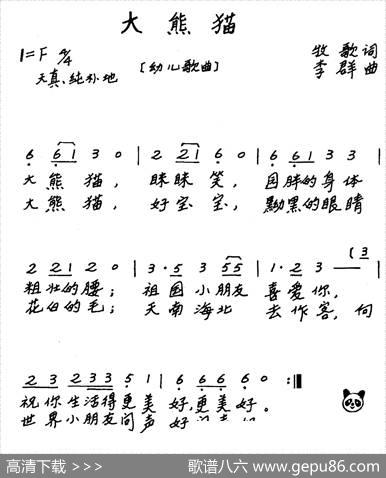 大熊猫
1=F 2/4
天真、纯朴地
[幼儿歌曲]
牧歌词
李群曲
6 61 3 0 | 2 21 6 0 | 6 61 3 3
大熊猫， 眯眯笑， 圆胖的身体
大熊猫， 好宝宝， 黝黑的眼睛
2 221 2 0 | 3·5 3 55 | 1·2 3 — (3
粗壮的腰； 祖国小朋友 喜爱你，
花白的毛； 天南海北 去作客，向
2 3 2 33 5 1 | 6 66 6 0 :||
祝你生活得更美好，更美好。
世界小朋友问声好
高清下载 >>>
歌谱八六 www.gepu86.com